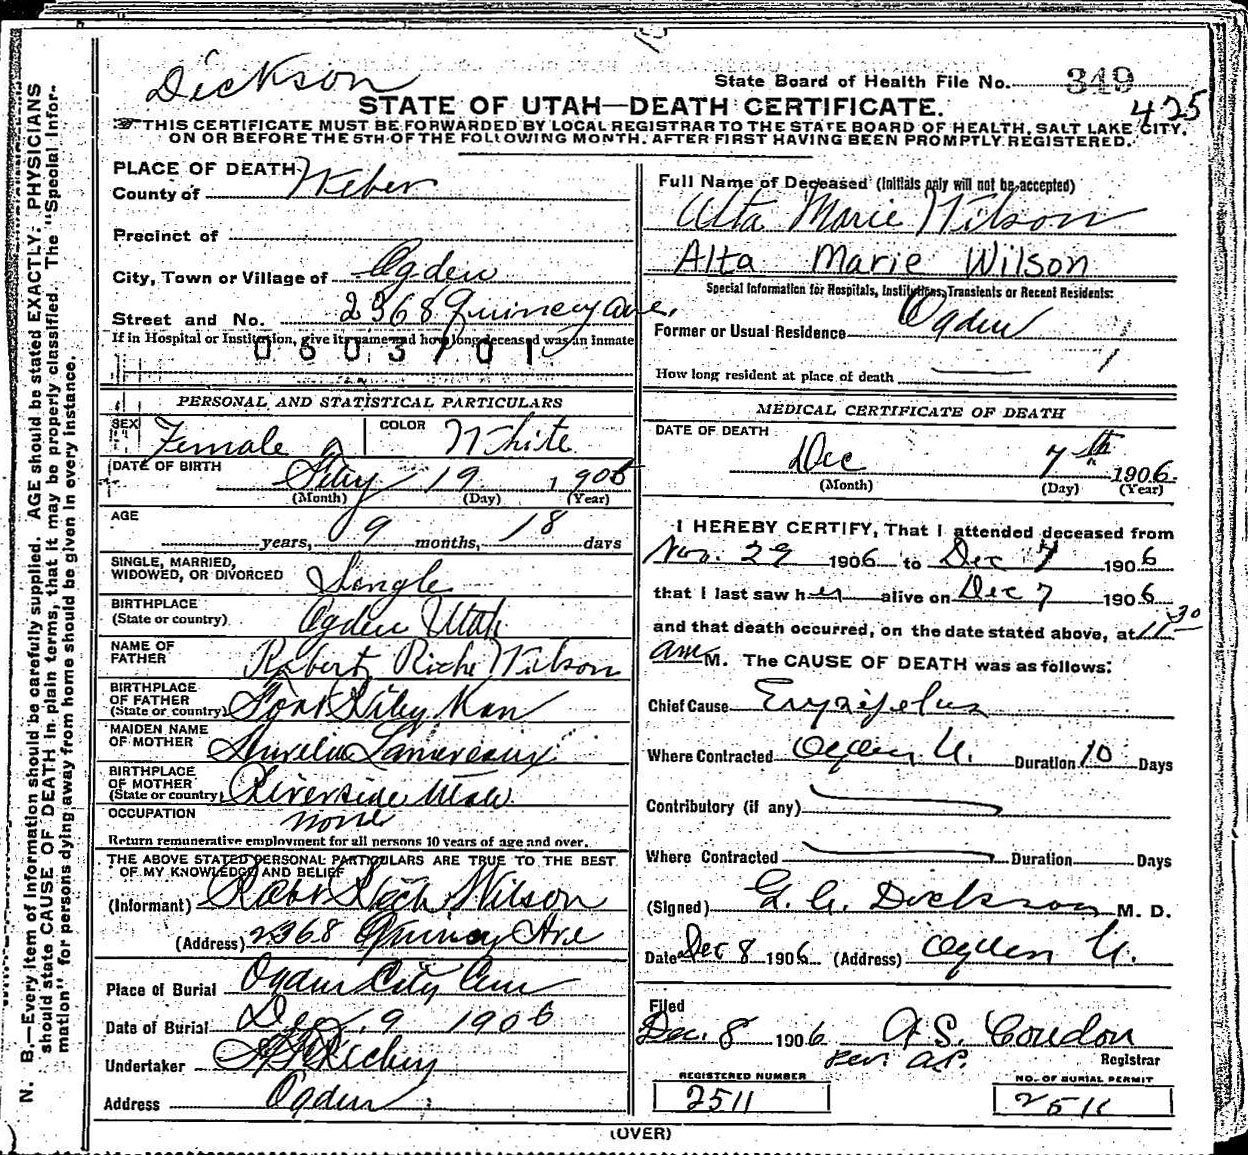 Dickson
State Board of Health File No. 349
425
STATE OF UTAH—DEATH CERTIFICATE.
THIS CERTIFICATE MUST BE FORWARDED BY LOCAL REGISTRAR TO THE STATE BOARD OF HEALTH, SALT LAKE CITY,
ON OR BEFORE THE 5TH OF THE FOLLOWING MONTH, AFTER FIRST HAVING BEEN PROMPTLY REGISTERED.
N. B.—Every item of information should be carefully supplied. AGE should be stated EXACTLY. PHYSICIANS
should state CAUSE OF DEATH in plain terms, that it may be properly classified. The "Special Infor-
mation" for persons dying away from home should be given in every instance.
PLACE OF DEATH
County of Weber
Precinct of
City, Town or Village of Ogden
Street and No. 2368 Quincy ave.
If in Hospital or Institution, give its name and how long deceased was an inmate
0603701
PERSONAL AND STATISTICAL PARTICULARS
SEX Female COLOR White
DATE OF BIRTH Feby 19 1906
(Month) (Day) (Year)
AGE years, 9 months, 18 days
SINGLE, MARRIED,
WIDOWED, OR DIVORCED Single
BIRTHPLACE
(State or country) Ogden Utah
NAME OF
FATHER Robert Wilson
BIRTHPLACE
OF FATHER
(State or country) Fort Riley Kan
MAIDEN NAME
OF MOTHER Aurelia Lamereaux
BIRTHPLACE
OF MOTHER
(State or country) Riverside Utah
OCCUPATION none
Return remunerative employment for all persons 10 years of age and over.
THE ABOVE STATED PERSONAL PARTICULARS ARE TRUE TO THE BEST
OF MY KNOWLEDGE AND BELIEF
(Informant) Robt Wilson
(Address) 2368 Quincy Ave
Place of Burial Ogden City Cem
Date of Burial Dec. 9 1906
Undertaker
Address Ogden
Full Name of Deceased (Initials only will not be accepted)
Alta Marie Wilson
Alta Marie Wilson
Special Information for Hospitals, Institutions, Transients or Recent Residents:
Former or Usual Residence Ogden
How long resident at place of death
MEDICAL CERTIFICATE OF DEATH
DATE OF DEATH
Dec 7th 1906
(Month) (Day) (Year)
I HEREBY CERTIFY, That I attended deceased from
Nov. 29 1906 to Dec 7 1906
that I last saw her alive on Dec 7 1906
and that death occurred, on the date stated above, at 11 30
am M. The CAUSE OF DEATH was as follows:
Chief Cause Erysipelas
Where Contracted Ogden U. Duration 10 Days
Contributory (if any)
Where Contracted Duration Days
(Signed) Dickson M. D.
Date Dec 8 1906 (Address) Ogden U.
Filed
Dec. 8 1906 A. S. Condon
Registrar
REGISTERED NUMBER
2511
NO. OF BURIAL PERMIT
2511
(OVER)